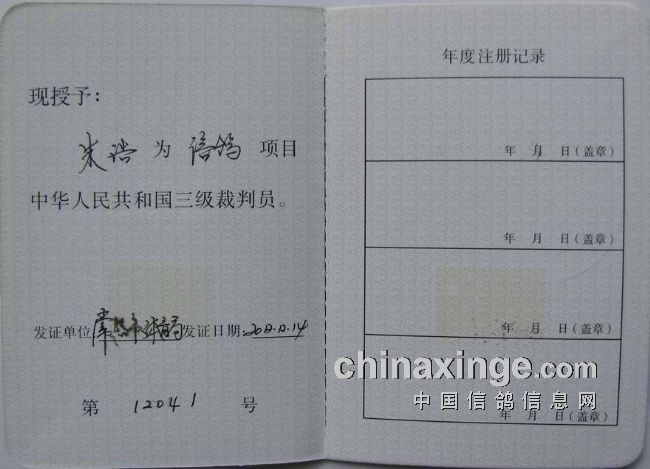 现授予：
朱浩 为 信鸽 项目
中华人民共和国三级裁判员。
发证单位 发证日期：2012.12.14
第 12041 号
年度注册记录
年 月 日（盖章）
年 月 日（盖章）
年 月 日（盖章）
年 月 日（盖章）
chinaxinge.com
中国信鸽信息网